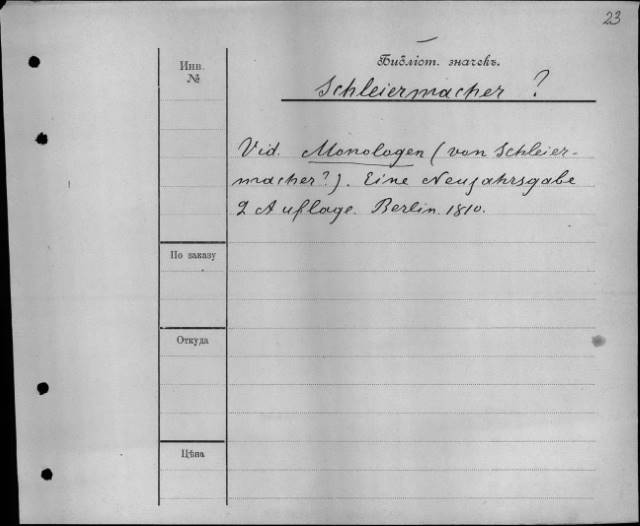 23
Инв.
№
Библіот. значекъ.
Schleiermacher ?
Vid. Monologen (von Schleier-
macher?). Eine Neujahrsgabe
2 Auflage. Berlin. 1810.
По заказу
Откуда
Цѣна